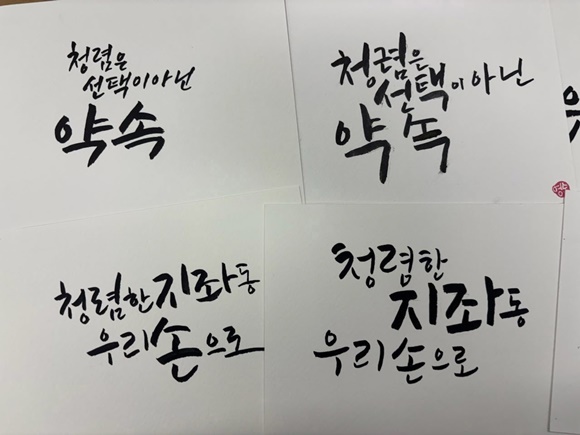 청렴은
선택이아닌
약속
청렴은
선택이아닌
약속
청렴한지좌동
우리손으로
청렴한
지좌동
우리손으로